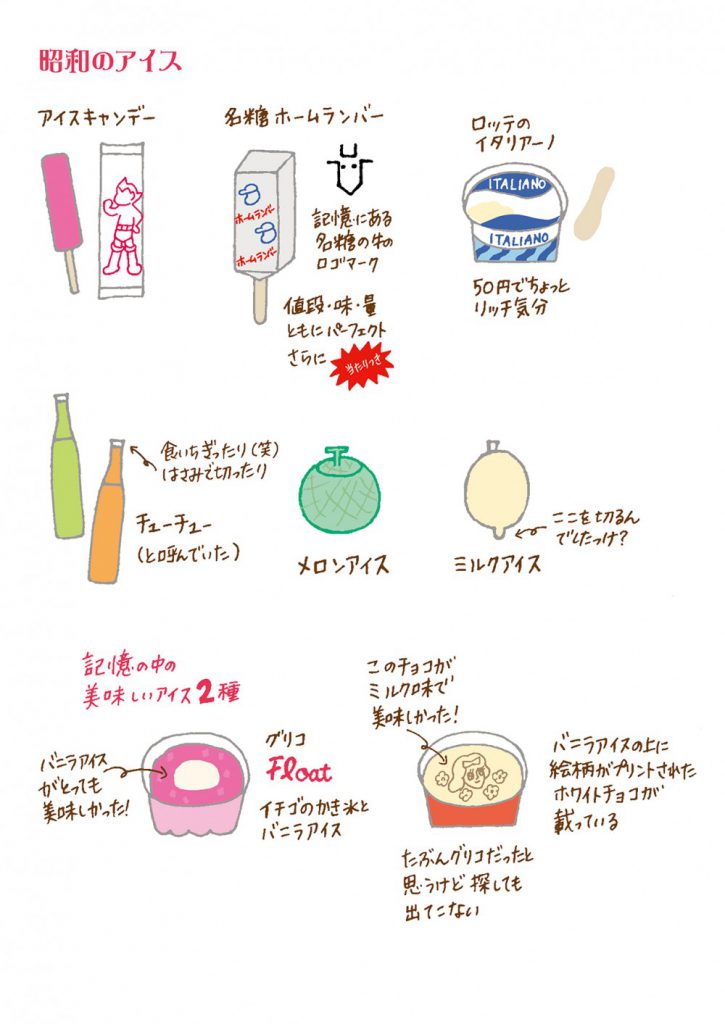 昭和のアイス
アイスキャンデー
名糖ホームランバー
ホームランバー
ホームランバー
記憶にある
名糖の牛の
ロゴマーク
値段・味・量
ともにパーフェクト
さらに
当たりつき
ロッテの
イタリアーノ
ITALIANO
ITALIANO
50円でちょっと
リッチ気分
食いちぎったり(笑)
はさみで切ったり
チューチュー
(と呼んでいた)
メロンアイス
ここを切るん
でしたっけ?
ミルクアイス
記憶の中の
美味しいアイス2種
バニラアイス
がとっても
美味しかった!
グリコ
Float
イチゴのかき氷と
バニラアイス
このチョコが
ミルク味で
美味しかった!
バニラアイスの上に
絵柄がプリントされた
ホワイトチョコが
載っている
たぶんグリコだったと
思うけど探しても
出てこない